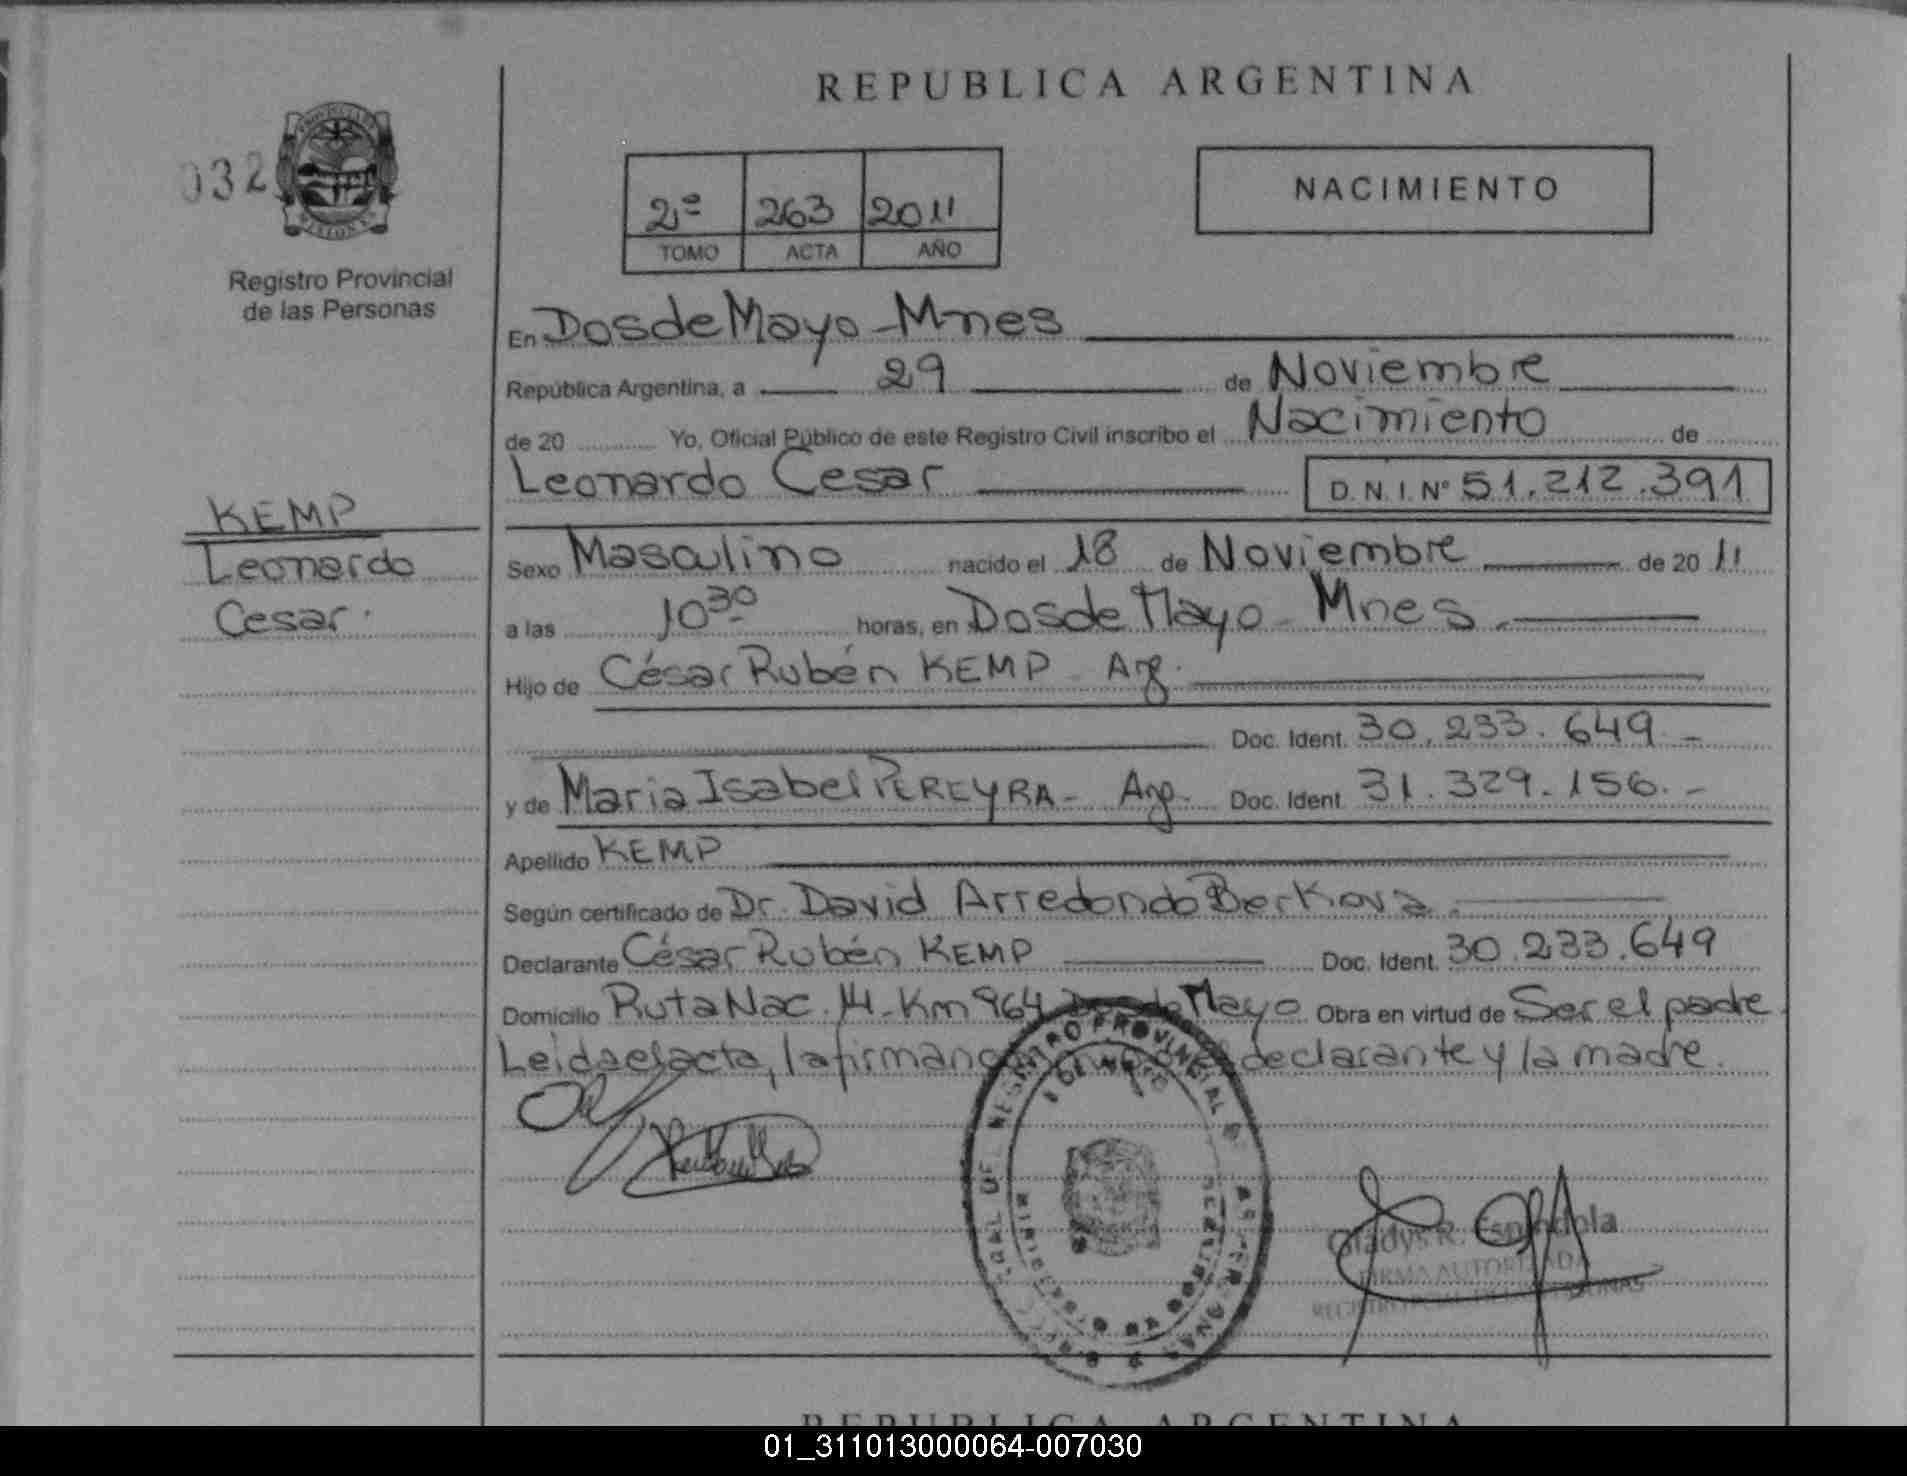 REPUBLICA ARGENTINA
032
Registro Provincial
de las Personas
2º 263 2011
TOMO ACTA AÑO
NACIMIENTO
En Dos de Mayo - Mnes
República Argentina, a 29 de Noviembre
de 20 Yo, Oficial Público de este Registro Civil inscribo el Nacimiento de
Leonardo Cesar D.N.I. Nº 51.212.391
KEMP
Leonardo
Cesar.
Sexo Masculino nacido el 18 de Noviembre de 2011
a las 10³⁰ horas, en Dos de Mayo - Mnes.
Hijo de César Rubén KEMP - Arg.
Doc. Ident. 30.233.649.-
y de Maria Isabel PEREYRA - Arg. Doc. Ident. 31.329.156.-
Apellido KEMP
Según certificado de Dr. David Arredondo Berkova.
Declarante César Rubén KEMP Doc. Ident. 30.233.649
Domicilio Ruta Nac. 14 - Km 964 Dos de Mayo Obra en virtud de Ser el padre.
Leida el acta, la firman declarante y la madre.
REGISTRO PROVINCIAL DE LAS PERSONAS
Gladys R. Espindola
FIRMA AUTORIZADA
REPUBLICA ARGENTINA
01_311013000064-007030